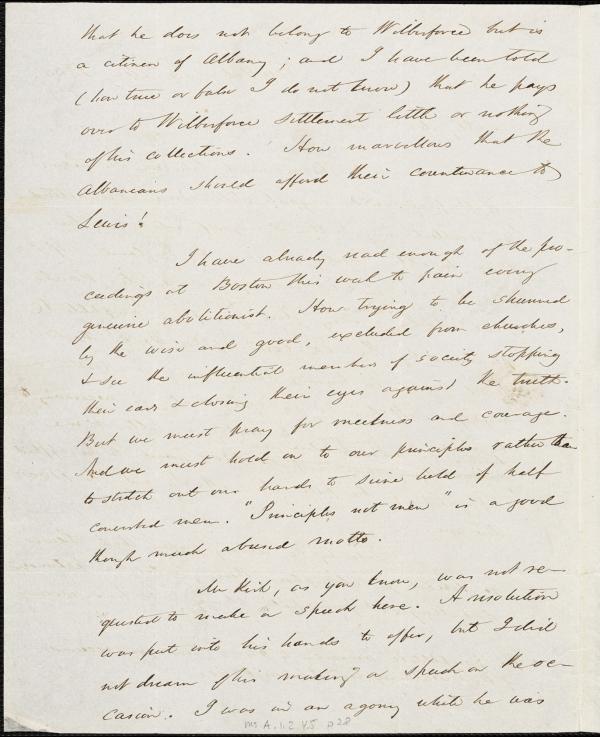 that he does not belong to Wilberforce but is
a citizen of Albany; and I have been told
(how true or false I do not know) that he pays
over to Wilberforce settlement little or nothing
of his collections. How marvellous that the
Albanians should afford their countenance to
Lewis!
I have already read enough of the pro-
ceedings at Boston this week to pain every
genuine abolitionist. How trying to be shunned
by the wise and good, excluded from churches,
& see the influential members of society stopping
their ears & closing their eyes against the truth.
But we must pray for meekness and courage.
And we must hold on to our principles rather than
to stretch out our hands to seize hold of half
converted men. "Principles not men" is a good
though much abused motto.
Mr Kirk, as you know, was not re-
quested to make a speech here. A resolution
was put into his hands to offer, but I did
not dream of his making a speech on the oc-
casion. I was in an agony while he was
Ms A.1.2 V.5 p28